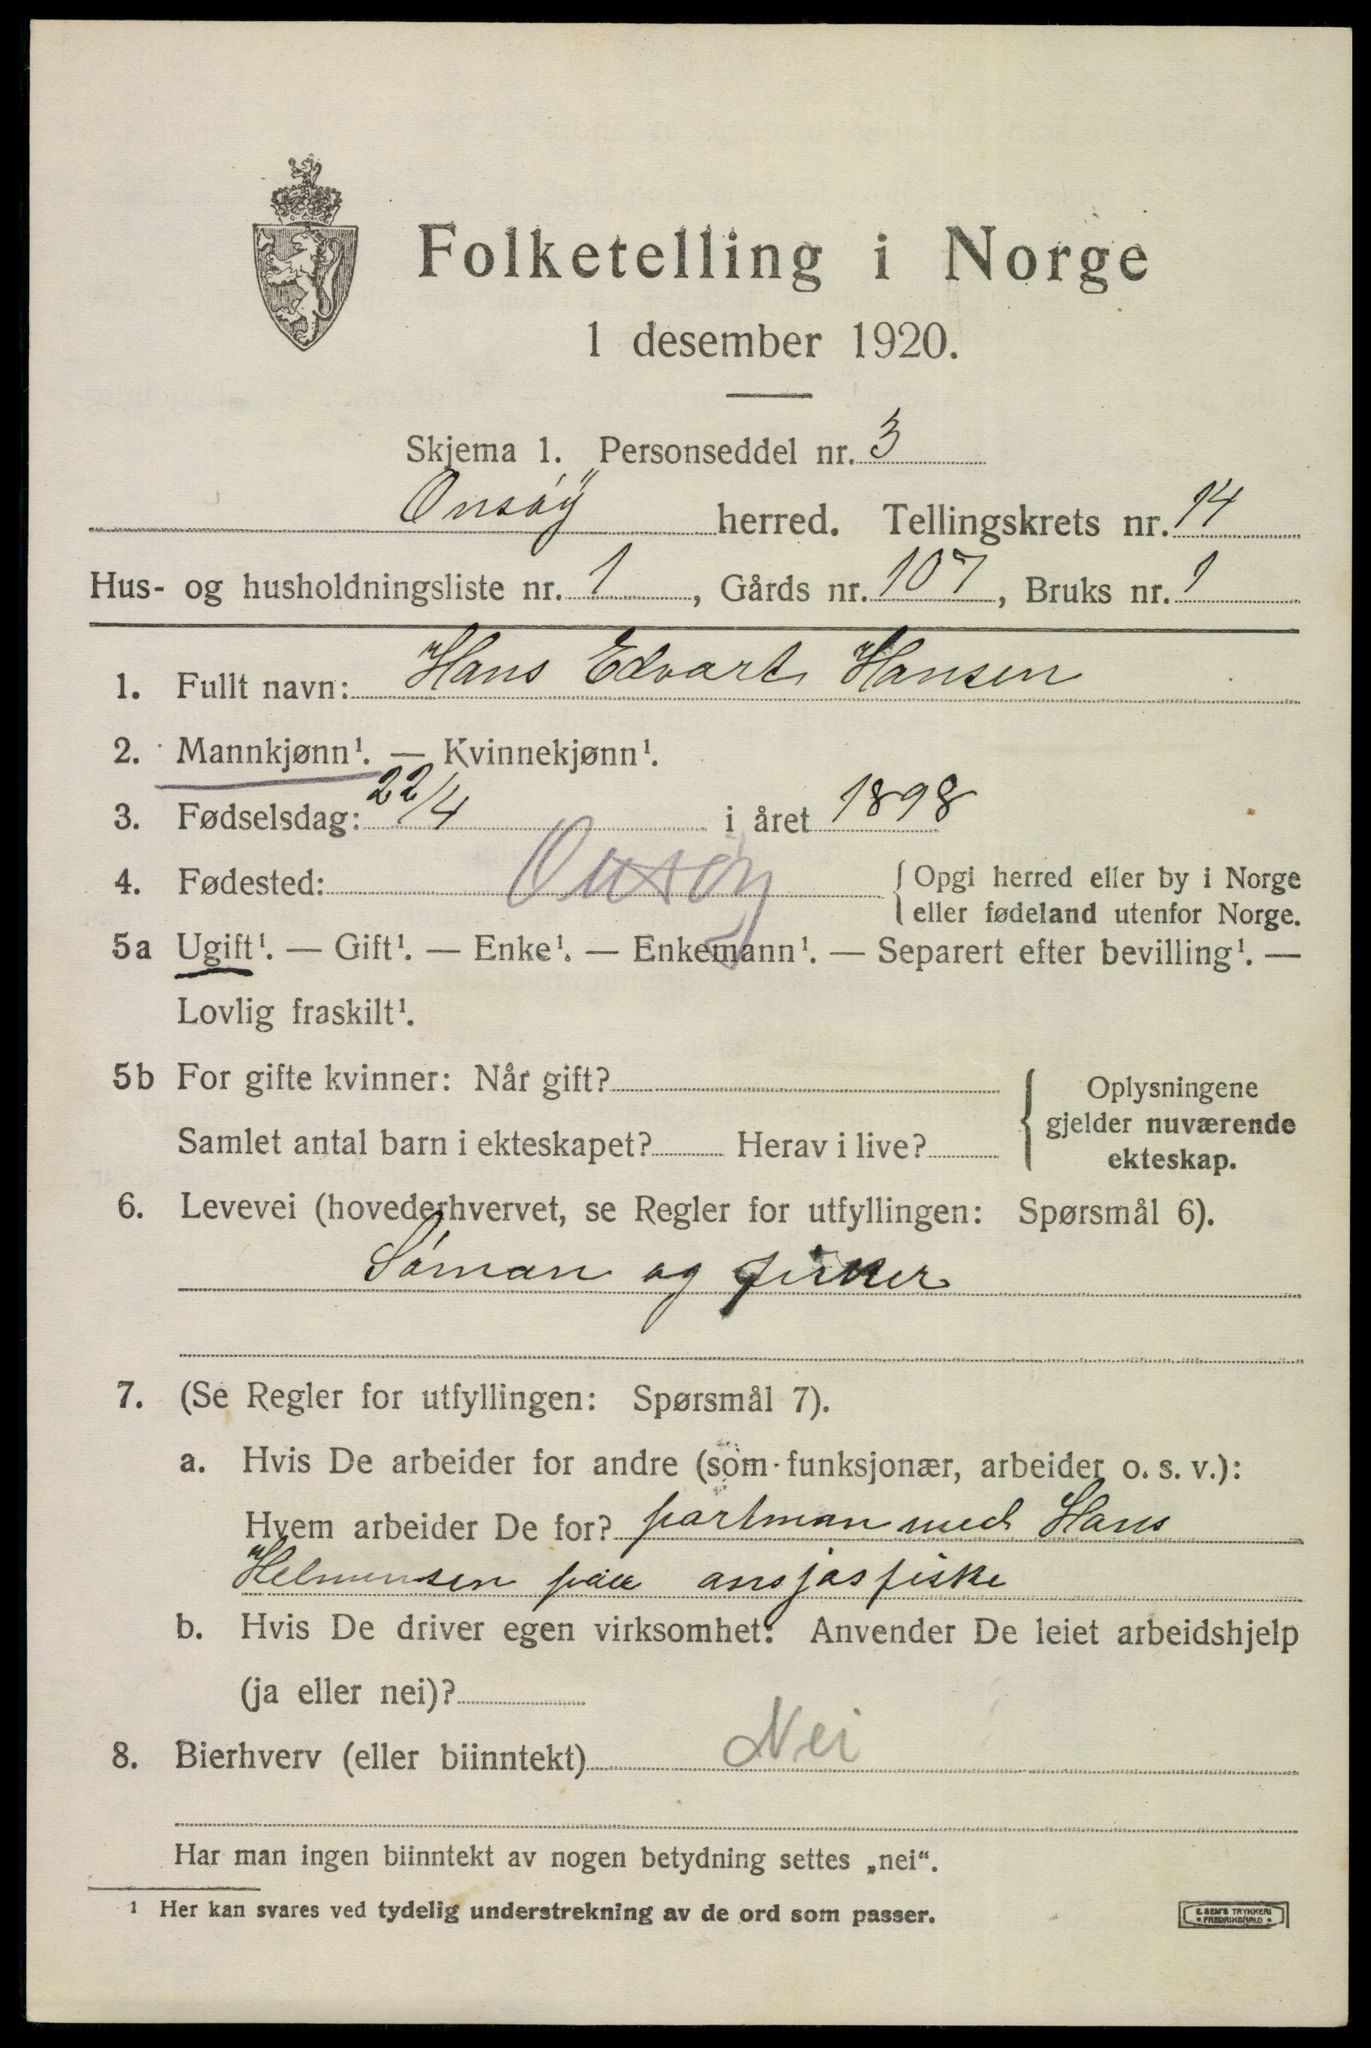 Folketelling i Norge
1 desember 1920.
Skjema 1. Personseddel nr. 3
Onsøy herred. Tellingskrets nr. 14
Hus- og husholdningsliste nr. 1, Gårds nr. 107, Bruks nr. 1
1. Fullt navn: Hans Edvart Hansen
2. Mannkjønn¹. — Kvinnekjønn¹.
3. Fødselsdag: 22/4 i året 1898
4. Fødested: Onsøy { Opgi herred eller by i Norge
eller fødeland utenfor Norge.
5a Ugift¹. — Gift¹. — Enke¹. — Enkemann¹. — Separert efter bevilling¹. —
Lovlig fraskilt¹.
5b For gifte kvinner: Når gift? { Oplysningene
gjelder nuværende
Samlet antal barn i ekteskapet? Herav i live?
ekteskap.
6. Levevei (hovederhvervet, se Regler for utfyllingen: Spørsmål 6).
Söman og fisker
7. (Se Regler for utfyllingen: Spørsmål 7).
a. Hvis De arbeider for andre (som funksjonær, arbeider o. s. v.):
Hvem arbeider De for? partman med Hans
Helmensen paa ansjosfiske
b. Hvis De driver egen virksomhet: Anvender De leiet arbeidshjelp
(ja eller nei)?
8. Bierhverv (eller biinntekt) Nei
Har man ingen biinntekt av nogen betydning settes „nei“.
¹ Her kan svares ved tydelig understrekning av de ord som passer.
E. SEM'S TRYKKERI
* FREDRIKSHALD *